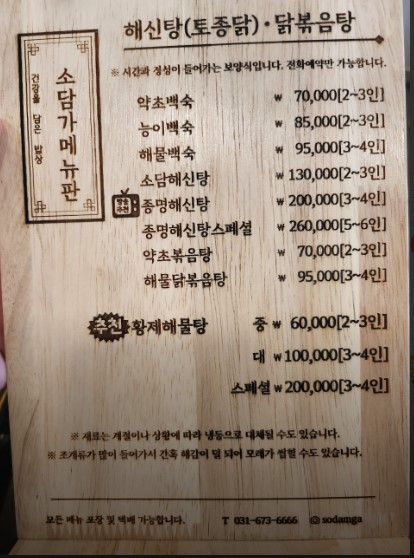 해신탕(토종닭)·닭볶음탕
※ 시간과 정성이 들어가는 보양식입니다. 전화예약만 가능합니다.
소담가메뉴판
건강을 담은 밥상
약초백숙 ₩ 70,000[2~3인]
능이백숙 ₩ 85,000[2~3인]
해물백숙 ₩ 95,000[3~4인]
소담해신탕 ₩ 130,000[2~3인]
방송추천 종명해신탕 ₩ 200,000[3~4인]
종명해신탕스페셜 ₩ 260,000[5~6인]
약초볶음탕 ₩ 70,000[2~3인]
해물닭볶음탕 ₩ 95,000[3~4인]
추천 황제해물탕 중 ₩ 60,000[2~3인]
대 ₩100,000[3~4인]
스페셜 ₩200,000[3~4인]
※ 재료는 계절이나 상황에 따라 냉동으로 대체될 수도 있습니다.
※ 조개류가 많이 들어가서 간혹 해감이 덜 되어 모래가 씹힐 수도 있습니다.
모든 메뉴 포장 및 택배 가능합니다. T 031-673-6666 sodamga